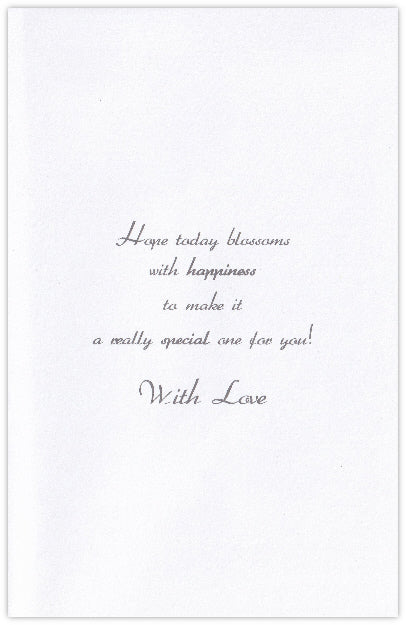 Hope today blossoms
with happiness
to make it
a really special one for you!
With Love